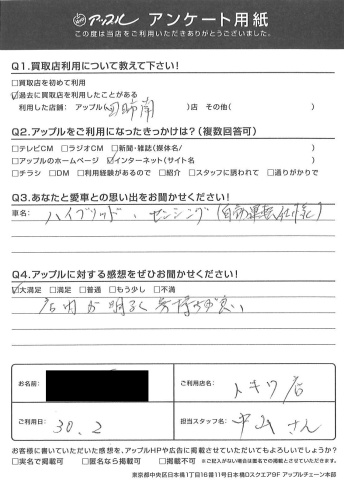 アップル アンケート用紙
この度は当店をご利用いただきありがとうございました。
Q1.買取店利用について教えて下さい!
□買取店を初めて利用
☑過去に買取店を利用したことがある
利用した店舗: アップル( )店 その他( )
Q2.アップルをご利用になったきっかけは?(複数回答可)
□テレビCM □ラジオCM □新聞・雑誌(媒体名/ )
□アップルのホームページ ☑インターネット(サイト名 )
□チラシ □DM □利用経験があるので □紹介 □スタッフに誘われて □通りがかりで
Q3.あなたと愛車との思い出をお聞かせください!
車名: ハイブリッド、センシング(自動運転仕様)
Q4.アップルに対する感想をぜひお聞かせください!
☑大満足 □満足 □普通 □もう少し □不満
店内が明るく気持ちが良い
お名前:
ご利用店名: トキワ店
ご利用日: 30.2
担当スタッフ名: さん
お客様に書いていただいた感想を、アップルHPや広告に掲載させていただいてもよろしいでしょうか?
□実名で掲載可 □匿名なら掲載可 □掲載不可 ※ご記入がない場合は匿名での掲載とさせていただきます。
東京都中央区日本橋1丁目16番11号日本橋Dスクエア9F アップルチェーン本部